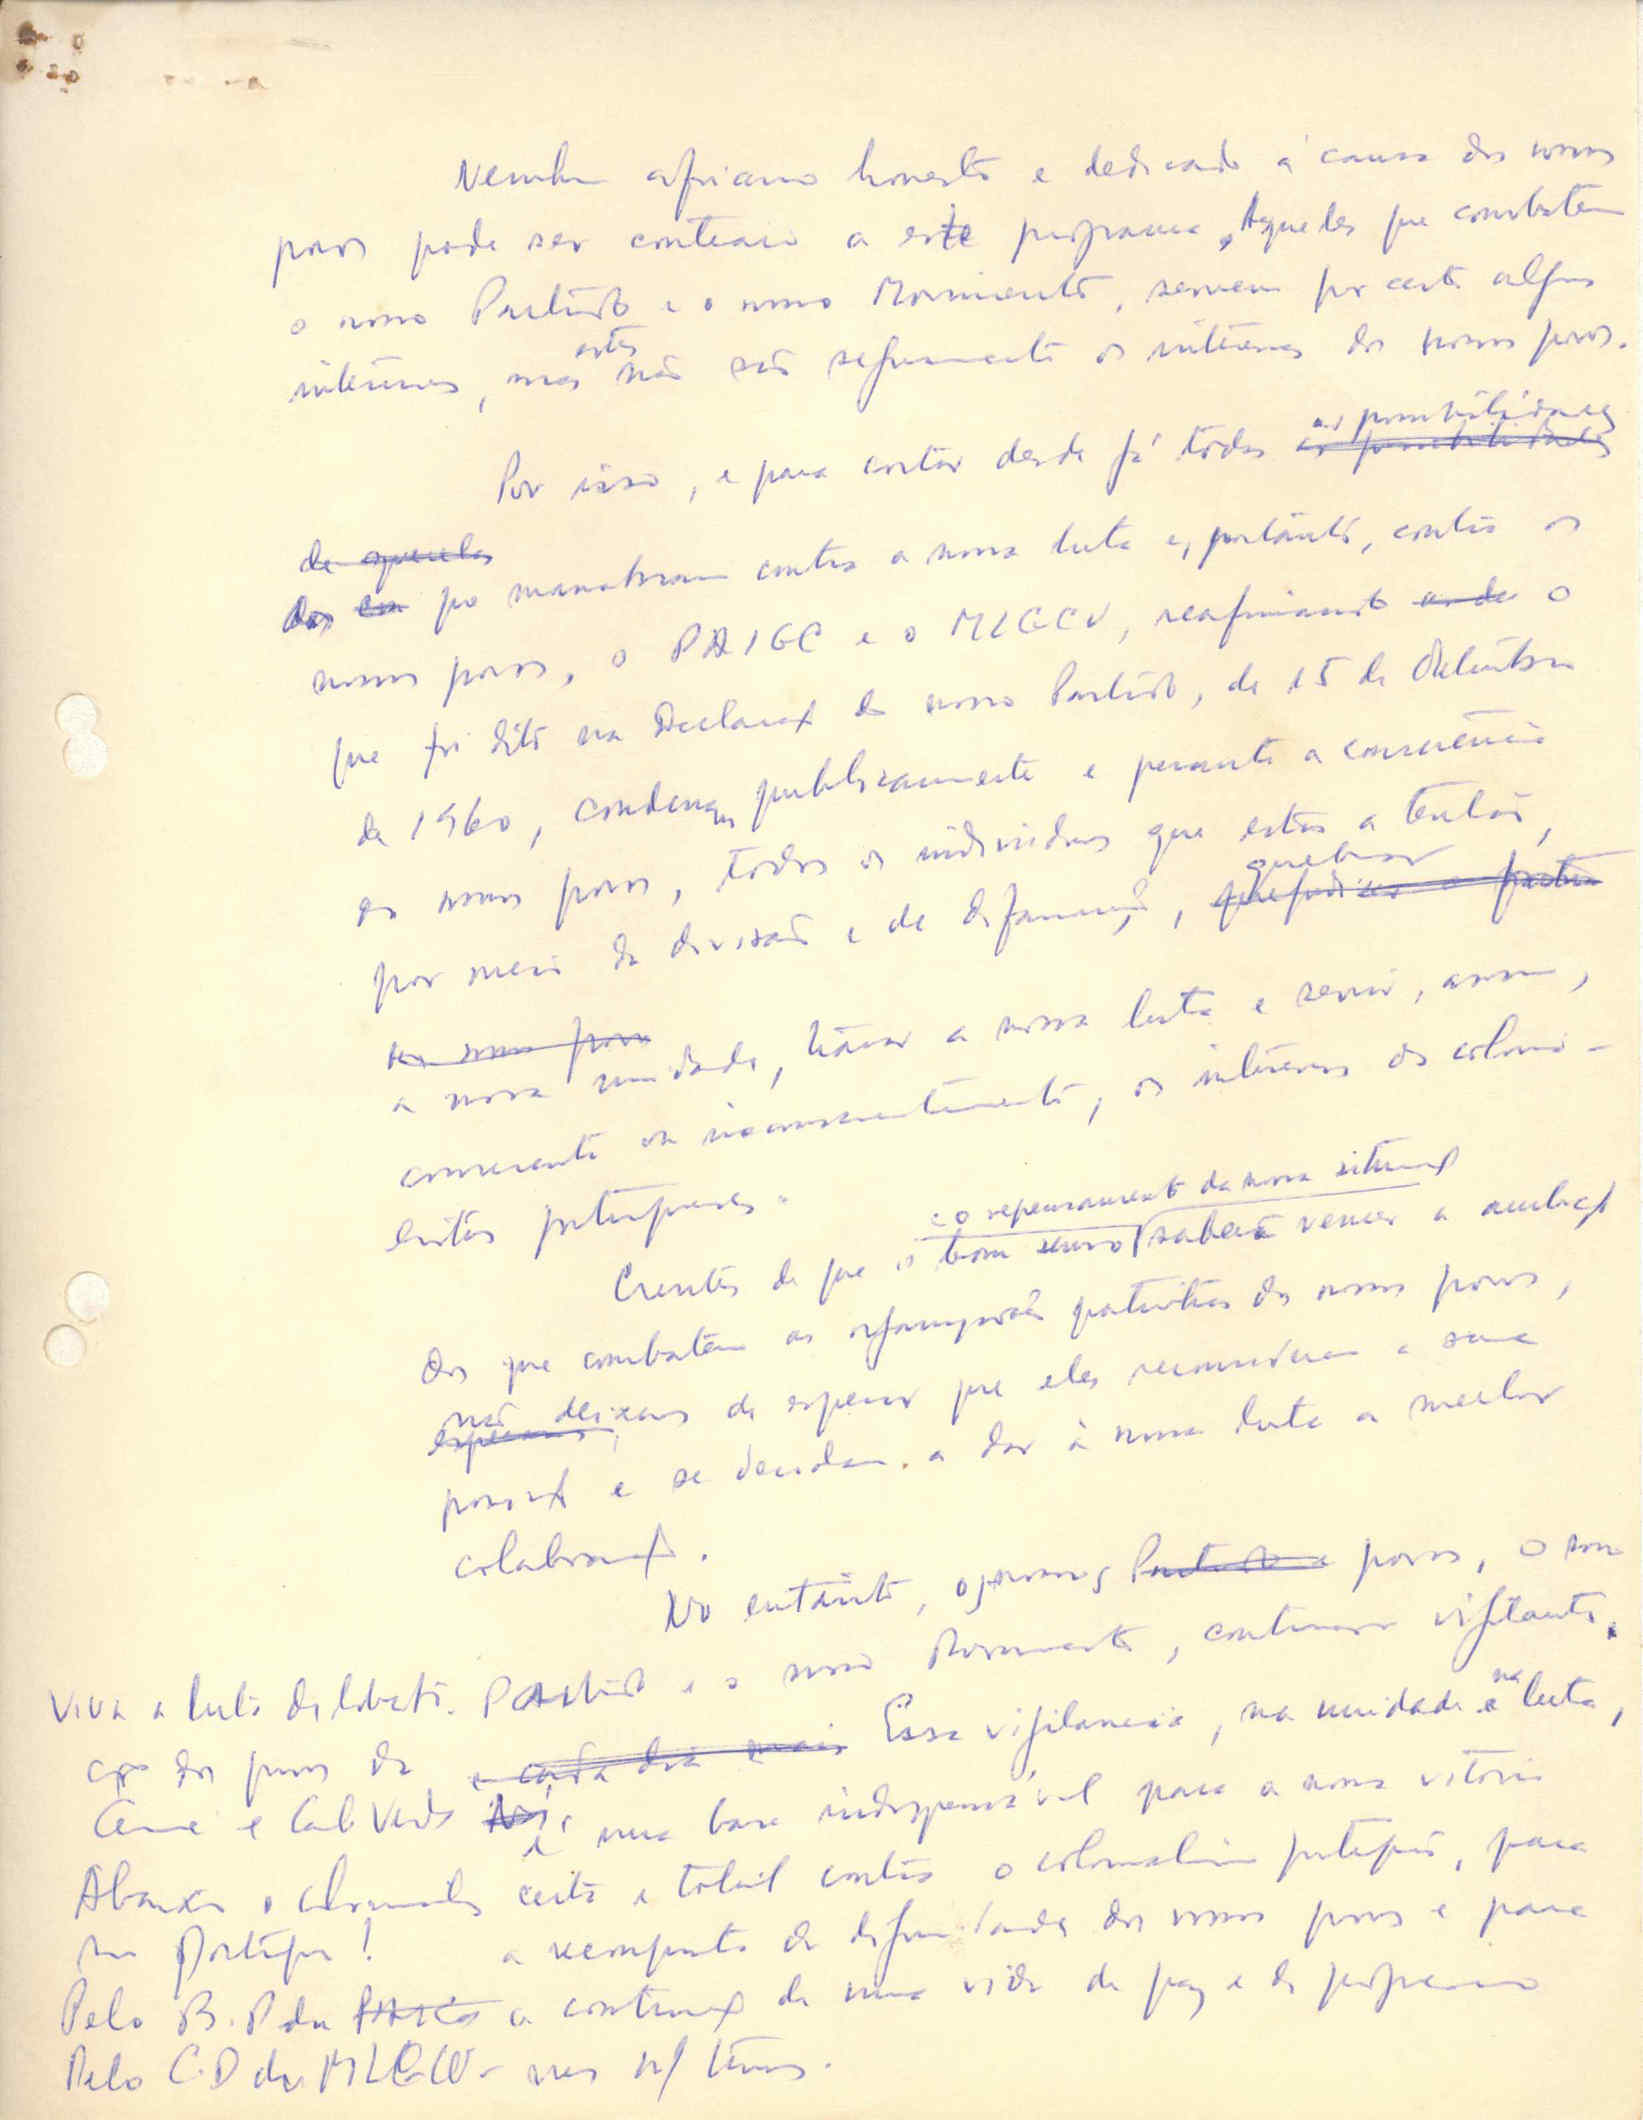 Nenhum africano honesto e dedicado à causa dos nossos
povos pode ser contrario a este programa. Aqueles que combatem
o nosso Partido e o nosso Movimento, servem por certo alguns
interesses, mas estes não são seguramente os interesses dos nossos povos.
Por isso, e para cortar desde já todas as possibilidades as possibilidades
de aqueles
dos que manobram contra a nossa luta e, portanto, contra os
nossos povos, o PAIGC e o MLGCV, reafirmando o
que foi dito na Declaração do nosso Partido, de 15 de
de 1960, condenam publicamente e perante a consciência
dos nossos povos, todos os individuos que estão a tentar,
por meio da divisão e de difamação, quebrar
a nossa unidade, travar a nossa luta e servir, assim,
consciente ou inconscientemente, os interesses dos colonia-
listas portugueses.
Crentes de que o bom senso e o da nossa situação saberá vencer a
dos que combatem as organizações patrióticas dos nossos povos,
não deixamos de esperar que eles reconsiderem a sua
posição e se decidam a dar à nossa luta a melhor
colaboração.
No entanto, os nossos povos, o nosso
Partido e o nosso Movimento, continuam vigilantes.
e cada dia mais Essa vigilancia, na unidade e na luta,
é uma base indispensável para a nossa vitória
certa e total contra o colonialismo português, para
a reconquista da dignidade dos nossos povos e para
a construção de uma vida de paz e de progresso
nas n/ terras.
Viva a luta de liberta-
ção dos povos da
Guiné e Cabo Verde
Abaixo o colonialis-
mo Português!
Pelo B.P. do PAIGC
Pelo C.D. do MLGCV-